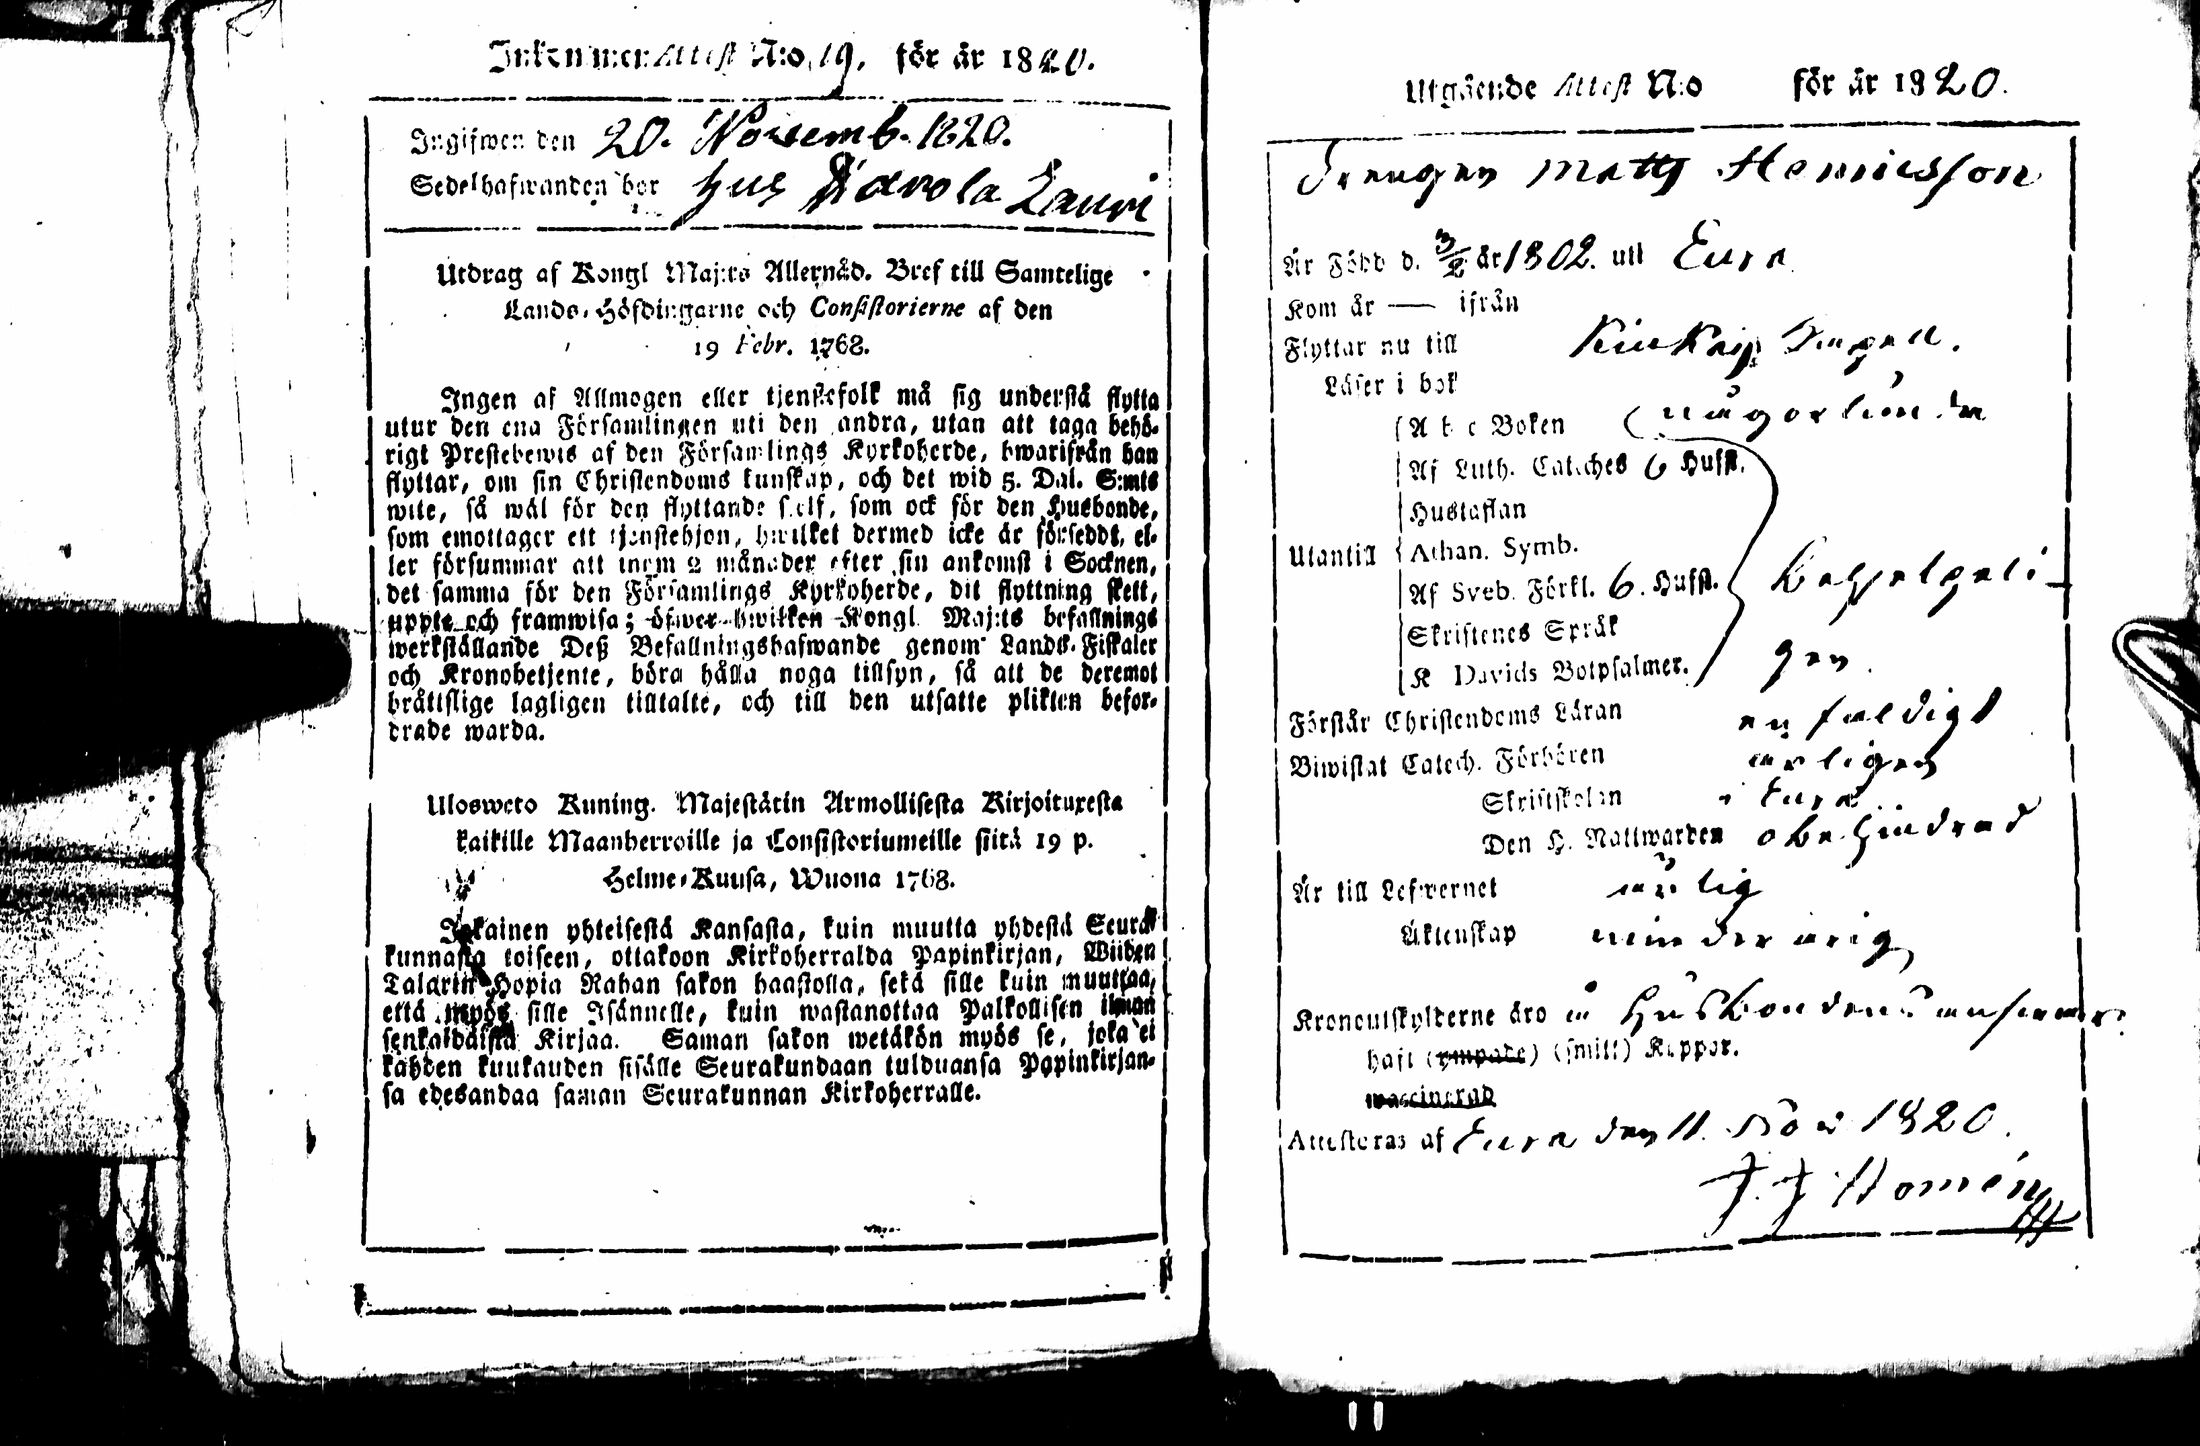 Inkommen Attest N:o 19. för år 1820.
Ingifwen den 20. Novemb. 1820.
Sedelhafwanden bor hus Karola Lauri
Utdrag af Kongl Maj:ts Allernåd. Bref till Samtelige
Lands-Höfdingarne och Consistorierne af den
19 Febr. 1768.
Ingen af Allmogen eller tjenstefolk må sig understå flytta
utur den ena Församlingen uti den andra, utan att taga behö-
rigt Prestebewis af den Församlings Kyrkoherde, hwarifrån han
flyttar, om sin Christendoms kunskap, och det wid 5. Dal. S:mts
wite, så wäl för den flyttande self, som ock för den Husbonde,
som emottager ett tjenstehjon, hwilket dermed icke är försedt, el-
ler försummar att inom 2 månader efter sin ankomst i Socknen,
det samma för den Församlings Kyrkoherde, dit flyttning skett,
uppte och framwisa; öfwer hwilken Kongl Maj:ts befallnings
werkställande Deß Befallningshafwande genom Lands-Fiskaler
och Kronobetjente, böra hålla noga tillsyn, så att de deremot
bråttslige lagligen tilltalte, och till den utsatte plikten befor-
drade warda.
Ulosweto Kuning. Majestätin Armollisesta Kirjoituxesta
kaikille Maanherroille ja Consistoriumeille siitä 19 p.
Helme-Kuusa, Wuona 1768.
Jokainen yhteisestä Kansasta, kuin muutta yhdestä Seura-
kunnasta toiseen, ottakoon Kirkoherralda Papinkirjan, Wiiden
Talarin Hopia Rahan sakon haastolla, sekä sille kuin muuttaa,
että myös sille Isännelle, kuin wastanottaa Palkollisen ilman
senkaldaista Kirjaa. Saman sakon wetäkön myös se, joka ei
kahden kuukauden sisälle Seurakundaan tulduansa Papinkirjan-
sa edesandaa saman Seurakunnan Kirkoherralle.
Utgående Attest N:o för år 1820.
Drengen Matts Henricsson
Är Född d. 3/2 år 1802. uti Eura
Kom år — ifrån
Flyttar nu till Kiukais Capell.
Läser i bok någorlunda
Utantill
A b c Boken
Af Luth. Cateches 6 Hufst.
Hustaflan
Athan. Symb.
Af Sveb. Förkl. 6. Hufst. behjelpeli-
Skriftenes Språk
K Davids Botpsalmer. gen.
Förstår Christendoms Läran enfaldigt
Biwistat Catech. Förhören årligen
Skriftskolan i Eura
Den H. Nattwarden obehindrad
Är till Lefwernet ärlig
Äktenskap minderårig
Kronoutskylderne äro å Husbondens ansvar.
haft (ympade) (smitt) Koppor.
waccinerad
Attesteras af Eura den 11. Nov 1820.
J. J Homén